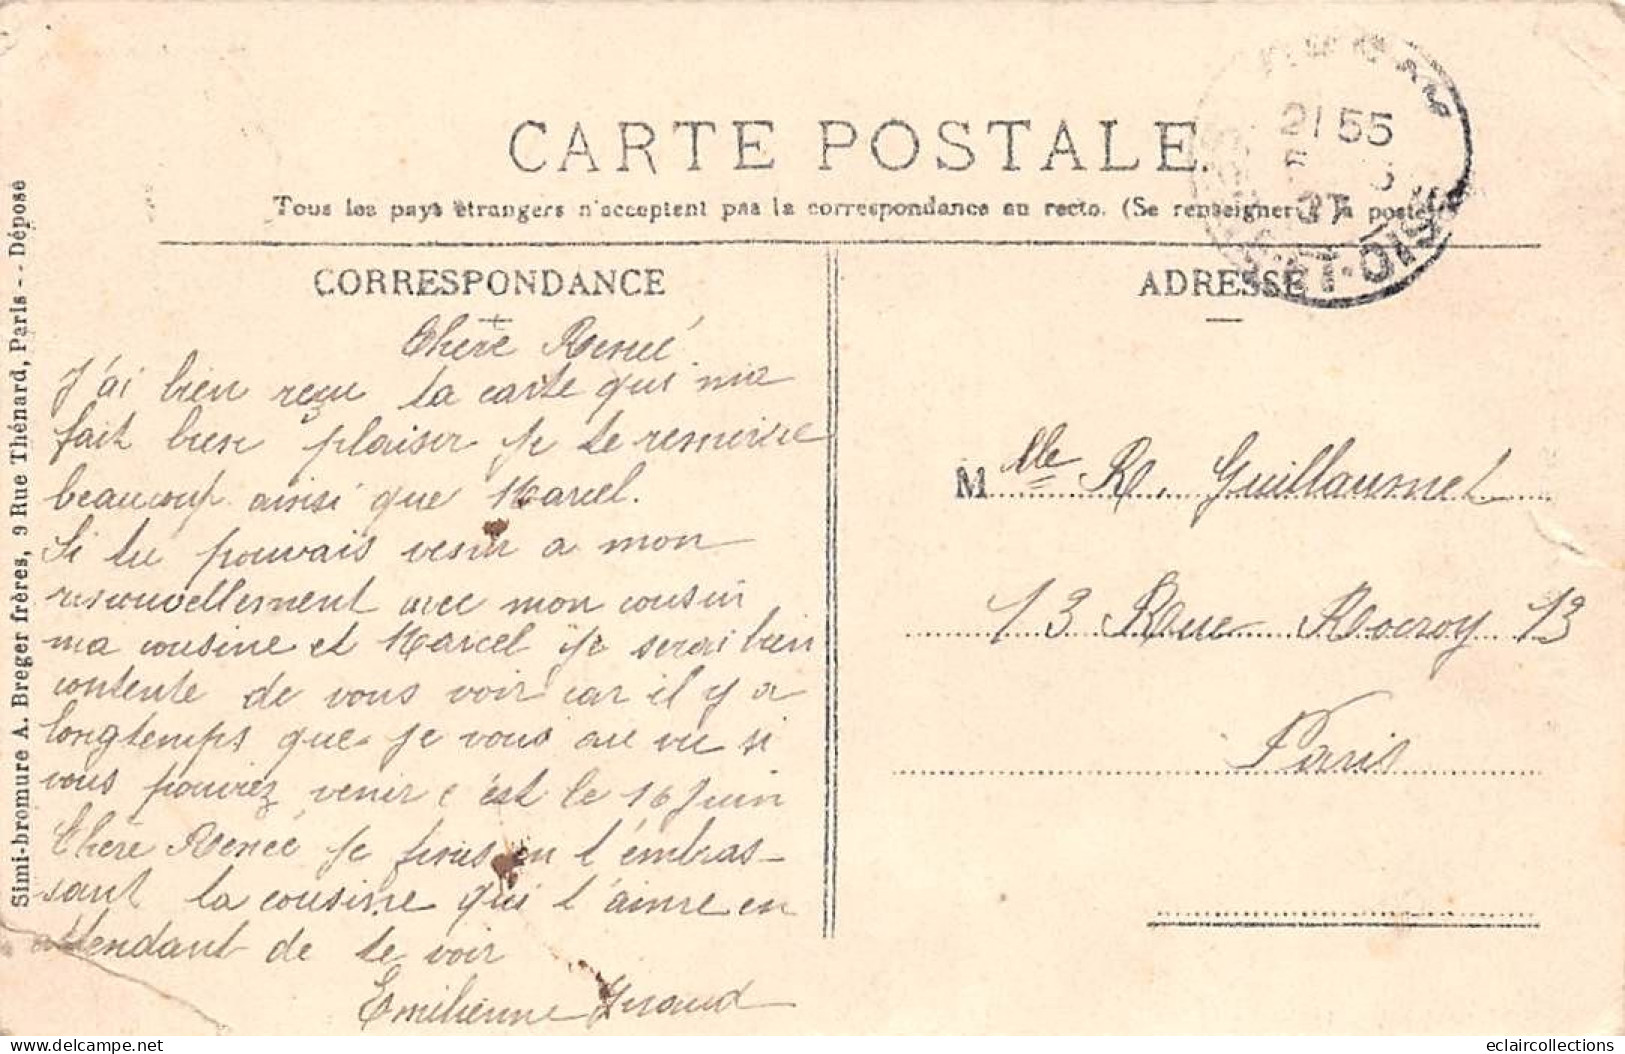 CARTE POSTALE
Tous les pays étrangers n'acceptent pas la correspondance au recto. (Se renseigner à la poste)
CORRESPONDANCE
Chère Renée
J'ai bien reçu ta carte qui m'a
fait bien plaisir je te remercie
beaucoup ainsi que Marcel.
Si tu pouvais venir a mon
renouvellement avec mon cousin
ma cousine et Marcel je serai bien
contente de vous voir car il y a
longtemps que je vous ai vu si
vous pouviez venir c'est le 16 Juin
Chère Renée je finis en t'embras-
sant ta cousine qui t'aime en
attendant de te voir
Emilienne Giraud
ADRESSE
Mlle R. Guillaumet
13 Rue Rocroy 13
Paris
21 55
Simi-bromure A. Breger frères, 9 Rue Thénard, Paris - - Déposé
delcampe.net
eclaircollections